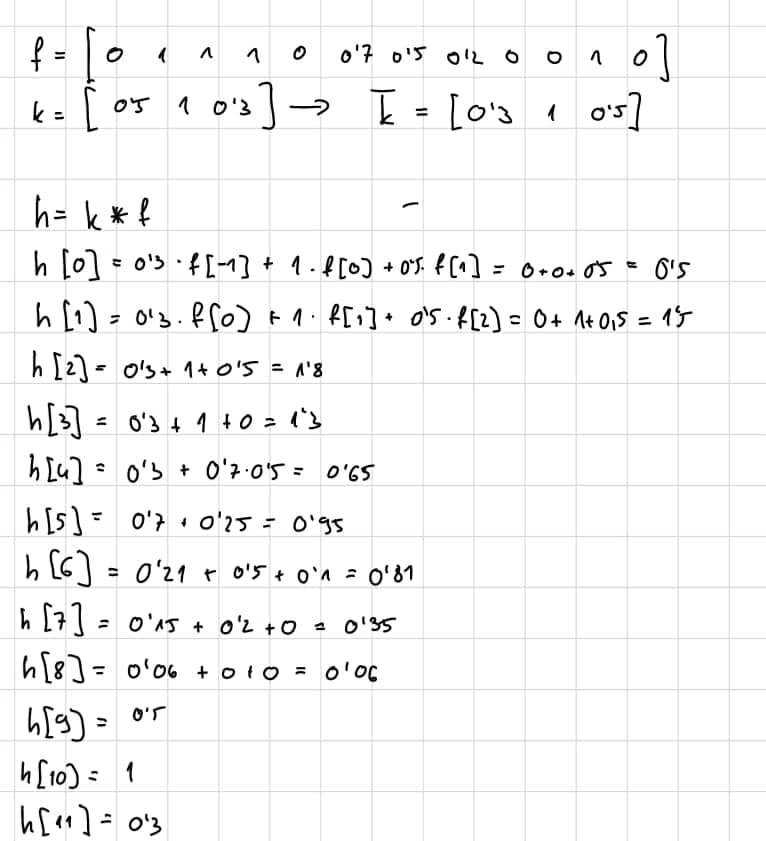 f = [ 0 1 1 1 0 0'7 0'5 0'2 0 0 1 0 ]
k = [ 05 1 0'3 ] → k̅ = [0'3 1 0'5]
h = k * f
h [0] = 0'3 · f[-1] + 1 · f[0] + 0'5 · f[1] = 0+0+05 = 0'5
h [1] = 0'3 · f[0] + 1 · f[1] + 0'5 · f[2] = 0 + 1+0,5 = 1'5
h [2] = 0'3 + 1 + 0'5 = 1'8
h[3] = 0'3 + 1 + 0 = 1'3
h[4] = 0'3 + 0'7·0'5 = 0'65
h[5] = 0'7 + 0'25 = 0'95
h [6] = 0'21 + 0'5 + 0'1 = 0'81
h [7] = 0'15 + 0'2 + 0 = 0'35
h[8] = 0'06 + 0 + 0 = 0'06
h[9] = 0'5
h[10] = 1
h[11] = 0'3